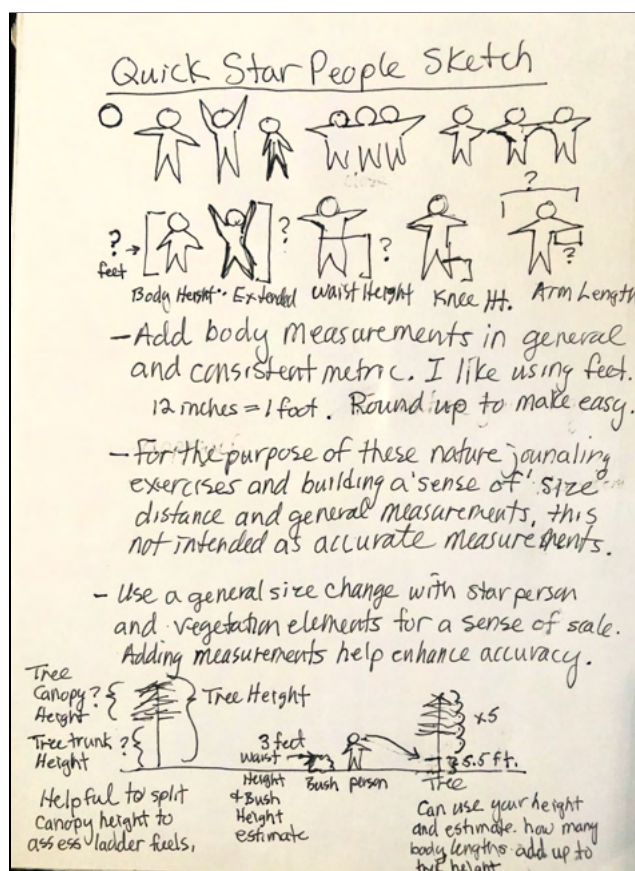 Quick Star People Sketch
?
? feet
?
?
?
Body Height
Extended
Waist Height
Knee Ht.
Arm Length
- Add body measurements in general
and consistent metric. I like using feet.
12 inches = 1 foot. Round up to make easy.
- For the purpose of these nature jounaling
exercises and building a 'sense of' size
distance and general measurements, this
not intended as accurate measurements.
- Use a general size change with star person
and vegetation elements for a sense of scale.
Adding measurements help enhance accuracy.
Tree
Canopy ?
Height
Tree trunk ?
Height
Tree Height
Helpful to split
Canopy height to
assess ladder fuels,
3 feet
waist
Height
& Bush
Height
estimate
Bush
person
x5
5.5 ft.
Tree
Can use your height
and estimate. how many
body lengths add up to
tree height